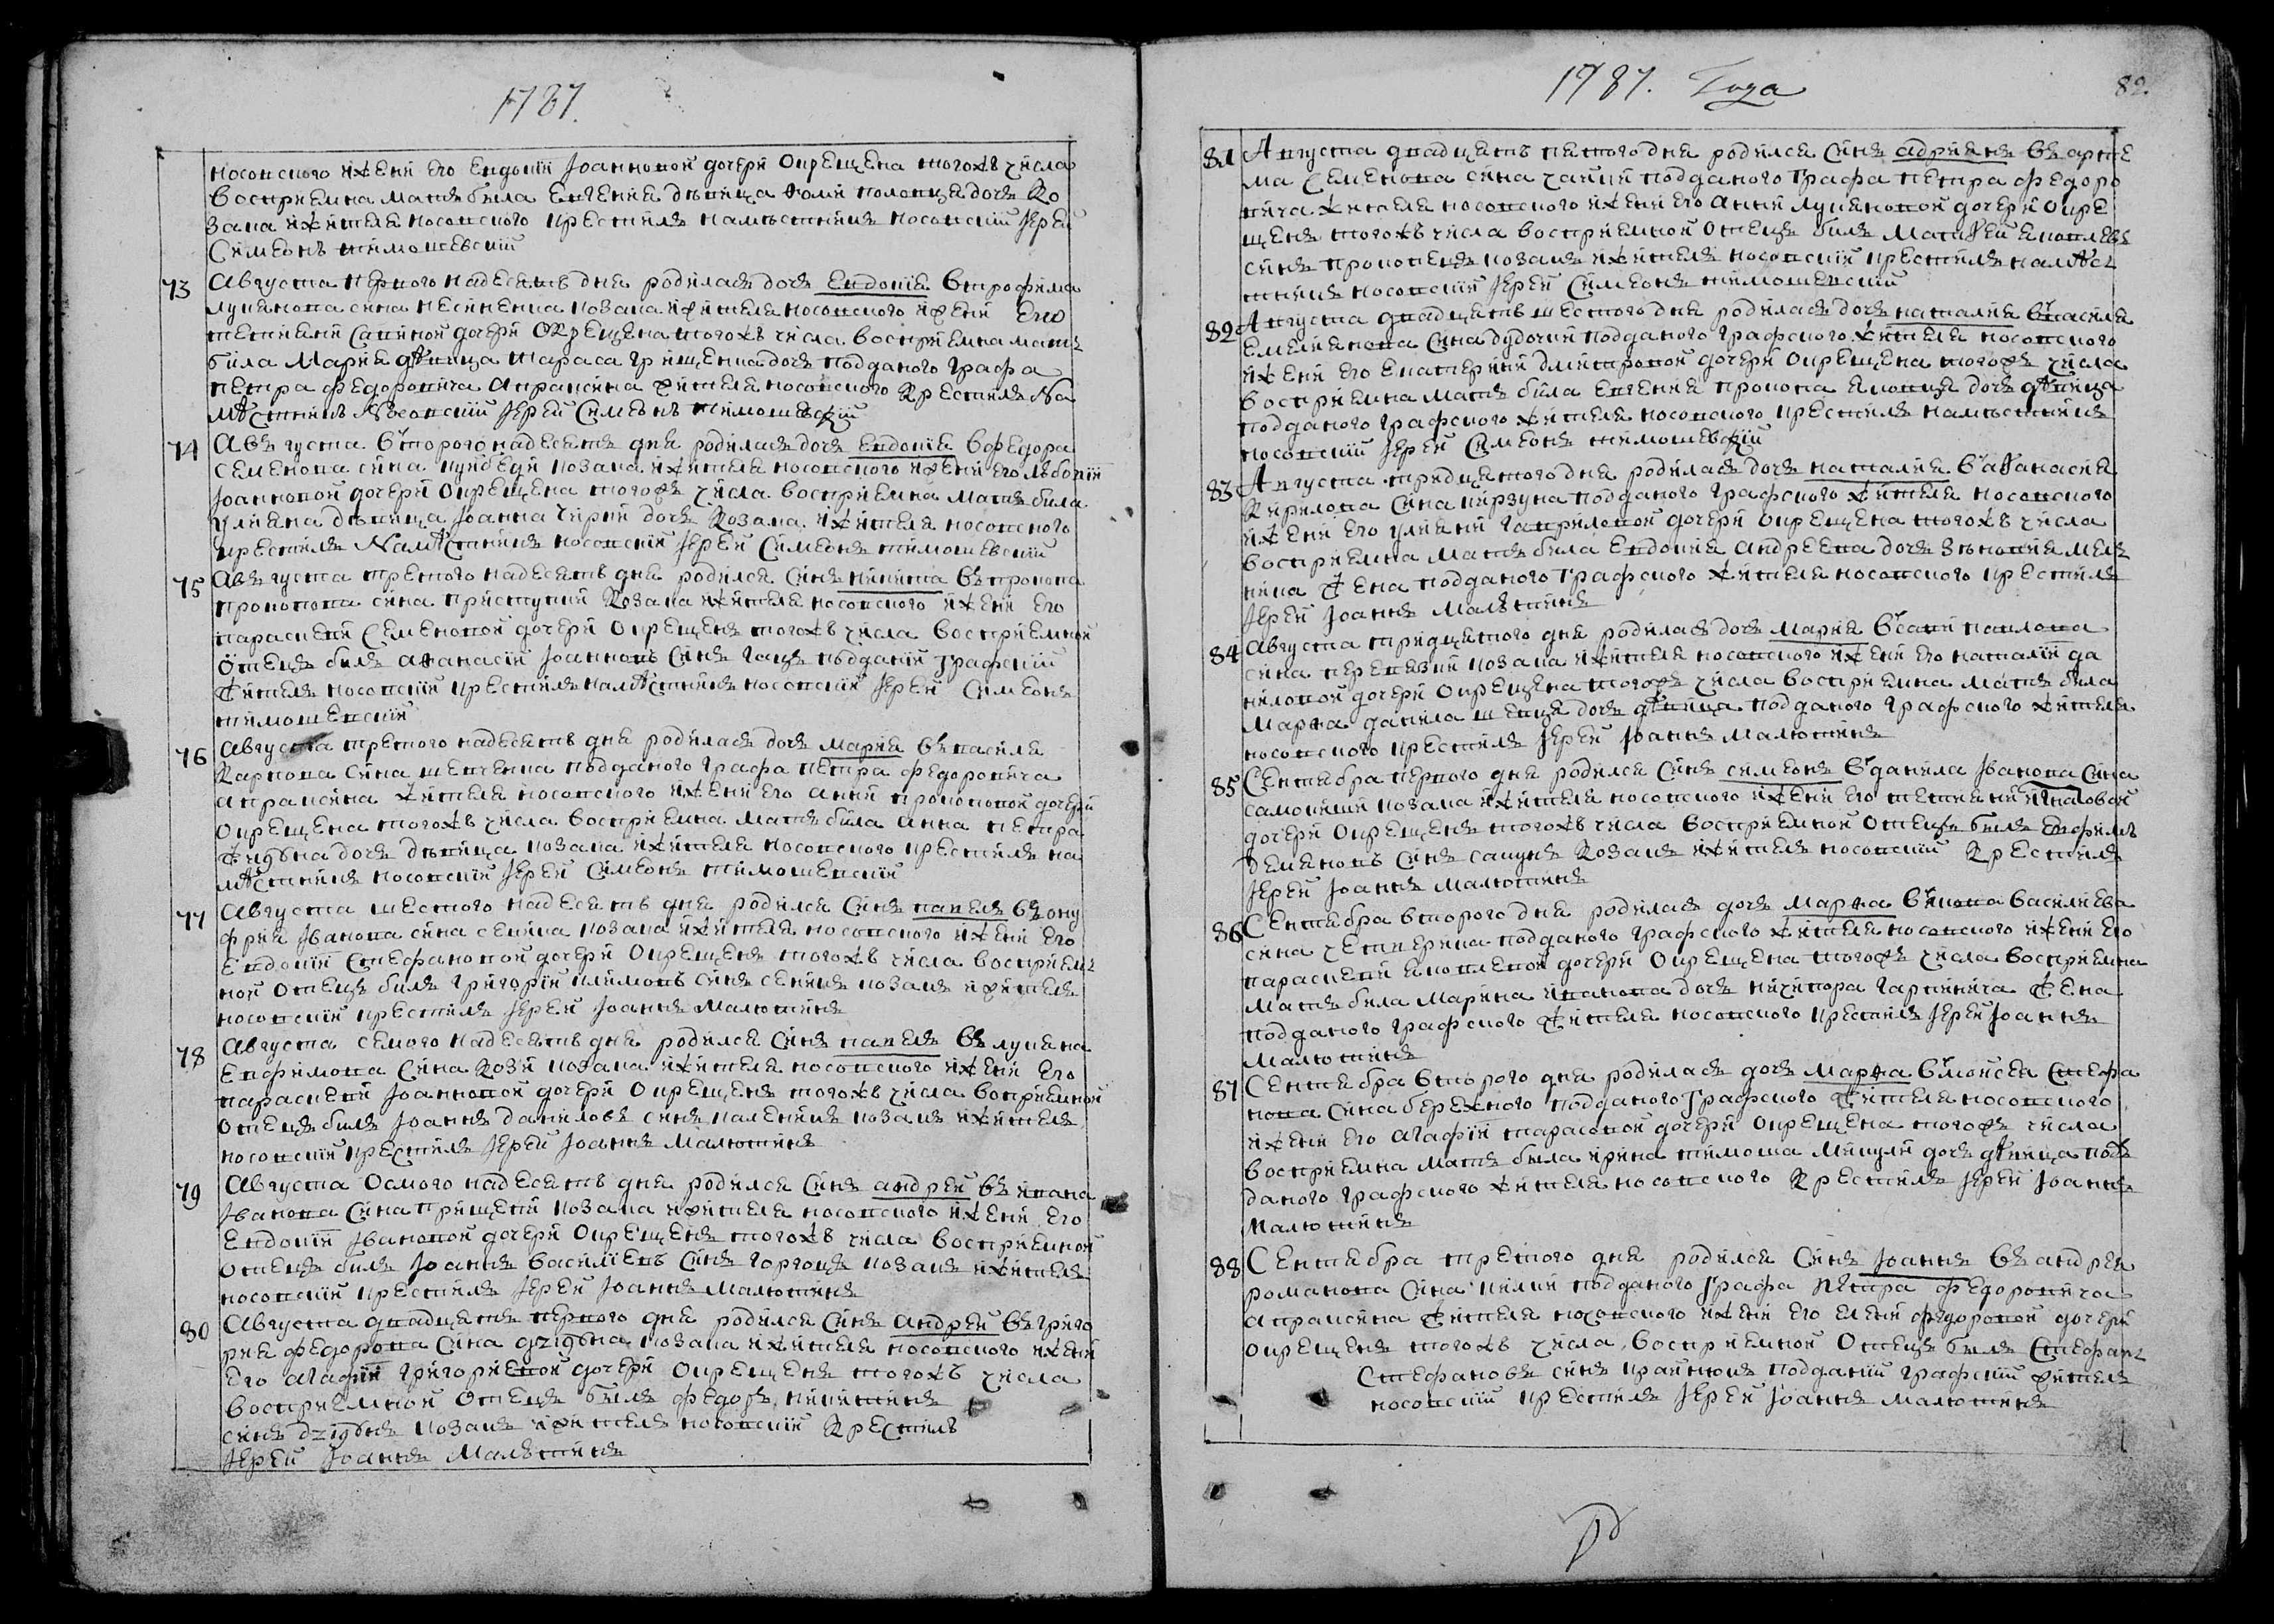 1787.
носовского и жени его евдокіи Іоанновой дочери окрещена тогожъ числа
восприемна мать била евгения дѣвица
зака и жителя носовского крестилъ намѣстникъ носовскій Іерей
Симеонъ тимошевскій
73 Августа первого надесять дня родилась дочь евдокія в трофима
лукянова сина несненка козака и жителя носовского и жени его
тетияни савиной дочери окрещена тогожъ числа восприемна мать
била Мария дѣвица тараса грищенка дочь подданого графа
петра федоровича апраксина жителя носовского крестилъ на
мѣстникъ носовскій Іерей Симеонъ тимошевскій
74 Августа второго надесять дня родилась дочь евдокія в федора
семенова сина куибеди козака и жителя носовского и жени его любовіи
Іоанновой дочери окрещена тогожъ числа восприемна мать била
улияна дѣвица Іоанна чирки дочь козака и жителя носовского
крестилъ намѣстникъ носовскій Іерей Симеонъ тимошевскій
75 Августа третого надесять дня родился синъ никита въ прокопа
прокопова сина приступки козака и жителя носовского и жени его
параскеви семеновой дочери окрещенъ тогожъ числа восприемной
отецъ билъ афанасій Іоанновъ синъ гаць подданій графскій
житель носовскій крестилъ намѣстникъ носовскій Іерей Симеонъ
тимошевскій
76 Августа третого надесять дня родилась дочь мария въ василя
карпова сина шевченка подданого графа петра федоровича
апраксина жителя носовского и жени его анни прокоповой дочери
окрещена тогожъ числа восприемна мать била анна петра
дочь дѣвица козака и жителя носовского крестилъ на
мѣстникъ носовскій Іерей Симеонъ тимошевскій
77 Августа шестого надесять дня родился синъ павелъ въ ону
фрия Іванова сина сенika козака и жителя носовского и жени его
евдокіи стефановой дочери окрещенъ тогожъ числа восприем
ной отецъ билъ григорій климовъ синъ сеникъ козакъ и житель
носовскій крестилъ Іерей Іоаннъ Малютинъ
78 Августа семого надесять дня родился синъ павелъ въ лукяна
евфимова сина кози козака и жителя носовского и жени его
параскеви Іоанновой дочери окрещенъ тогожъ числа воприемной
отецъ билъ Іоаннъ даниловъ синъ каленикъ козакъ и житель
носовскій крестилъ Іерей Іоаннъ Малютинъ
79 Августа осмого надесять дня родился синъ андрей въ ивана
Іванова сина прищепи козака и жителя носовского и жени его
евдокіи Івановой дочери окрещенъ тогожъ числа восприемной
отецъ билъ Іоаннъ василіевъ синъ горгоць козакъ и житель
носовскій крестилъ Іерей Іоаннъ Малютинъ
80 Августа двадцять первого дня родился синъ андрей въ григо
рия федорова сина дзюбна козака и жителя носовского и жени
его агафіи григориевой дочери окрещенъ тогожъ числа
восприемной отецъ билъ федоръ никитинъ
синъ козакъ и житель носовскій крестилъ
Іерей Іоаннъ Малютинъ
1787. Года
82.
81 Августа двадцять пятого дня родился синъ адриянъ въ арте
ма семенова сина чайки подданого графа петра федоро
вича жителя носовского и жени его анни лукяновой дочери окре
щенъ тогожъ числа восприемной отецъ билъ матфей яковлевъ
синъ прокопецъ козакъ и житель носовскій крестилъ намѣс
тникъ носовскій Іерей Симеонъ тимошевскій
82 Августа двадцять шестого дня родилась дочь наталия в василя
емелиянова сина дудочки подданого графского жителя носовского
и жени его екатерини дмитровой дочери окрещена тогожъ числа
восприемна мать била евгения прокопа яковца дочь дѣвица
подданого графского жителя носовского крестилъ намѣстникъ
носовскій Іерей Симеонъ тимошевскій
83 Августа тридцятого дня родилась дочь наталия в афанасия
кирилова сина кирзуна подданого графского жителя носовского
и жени его улияни гавриловой дочери окрещена тогожъ числа
восприемна мать била евдокия андреева дочь зѣновия мель
ника жена подданого графского жителя носовского крестилъ
Іерей Іоаннъ Малютинъ
84 Августа тридцятого дня родилась дочь мария в сави павлова
сина перевязки козака и жителя носовского и жени его наталіи да
ниловой дочери окрещена тогожъ числа восприемна мать била
марфа данила швця дочь дѣвица подданого графского жителя
носовского крестилъ Іерей Іоаннъ Малютинъ
85 Сентября первого дня родился синъ симеонъ в данила Іванова сина
самокиши козака и жителя носовского и жени его тетияни игнатовой
дочери окрещенъ тогожъ числа восприемной отецъ билъ евфимъ
демяновъ синъ сапунъ козакъ и житель носовскій крестилъ
Іерей Іоаннъ Малютинъ
86 Сентября второго дня родилась дочь марфа в якова василиева
сина четверика подданого графского жителя носовского и жени его
параскеви яковлевой дочери окрещена тогожъ числа восприемна
мать била марина иванова дочь ничипора гаркавича жена
подданого графского жителя носовского крестилъ Іерей Іоаннъ
Малютинъ
87 Сентября второго дня родилась дочь марфа в моисея стефа
нова сина бережного подданого графского жителя носовского
и жени его агафіи тарасовой дочери окрещена тогожъ числа
восприемна мать била ирина тимоша микули дочь дѣвица подъ
даного графского жителя носовского крестилъ Іерей Іоаннъ
Малютинъ
88 Сентября третого дня родился синъ Іоаннъ въ андрея
романова сина килки подданого графа петра федоровича
апраксина жителя носовского и жени его елени федоровой дочери
окрещенъ тогожъ числа, восприемной отецъ билъ стефанъ
стефановъ синъ крайнюкъ подданій графскій житель
носовскій крестилъ Іерей Іоаннъ Малютинъ